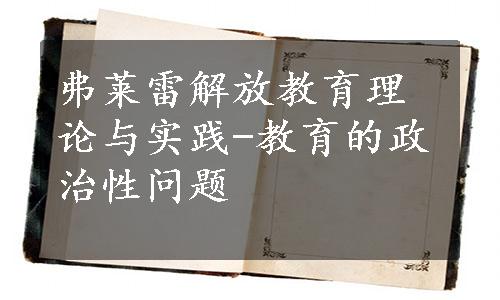 弗莱雷解放教育理
论与实践-教育的政
治性问题